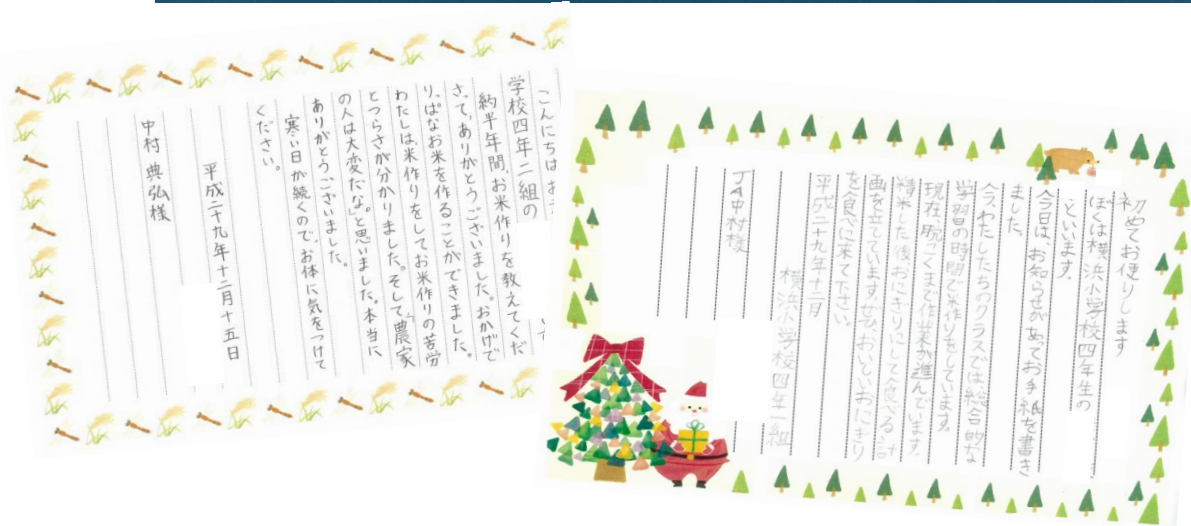 こんにちは
学校四年二組の
約半年間、お米作りを教えてくだ
さって、ありがとうございました。おかげで
りっぱなお米を作ることができました。
わたしは米作りをしてお米作りの苦労
とつらさが分かりました。そして、「農家
の人は大変だな。」と思いました。本当に
ありがとうございました。
寒い日が続くので、お体に気をつけて
ください。
平成二十九年十二月十五日
中村 典弘様
初めてお便りします
ぼくは横浜小学校四年生の
といいます。
今日は、お知らせがあってお手紙を書き
ました。
今、わたしたちのクラスでは、総合的な
学習の時間で米作りをしています。
現在、脱こくまで作業が進んでいます。
精米した後おにぎりにして食べる計
画を立てています。ぜひ、おいしいおにぎり
を食べに来て下さい。
平成二十九年十二月
横浜小学校四年一組
JA中村様